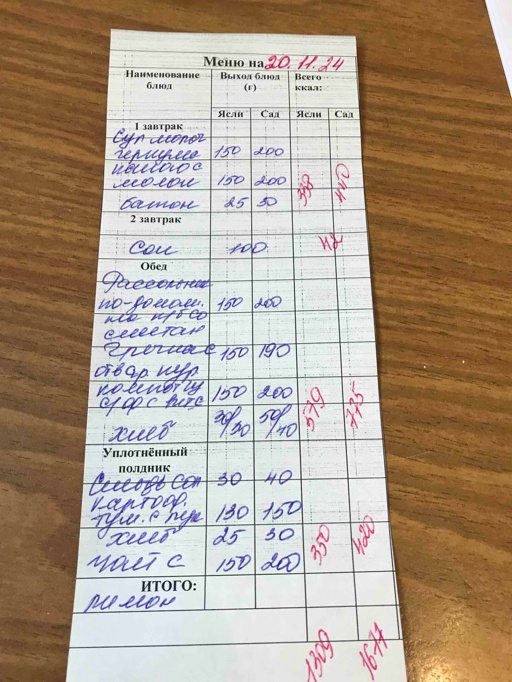 Меню на 20.11.24
Наименование блюд Выход блюд (г) Всего ккал:
Ясли Сад Ясли Сад
1 завтрак
Суп молоч
геркулес 150 200
какао с
молок 150 200 338 440
батон 25 30
2 завтрак
Сок 100 42
Обед
Рассольник
по-домаш. 150 200
на к/б со
сметан
Гречка с 150 190
отвар кур
компот 150 200
с/ф с вит.с 579 775
хлеб
Уплотнённый полдник
Сельдь сол 30 40
картоф.
туш. с кук 130 150
хлеб 25 30 350 420
чай с 150 200
ИТОГО:
лимон
1309 1677